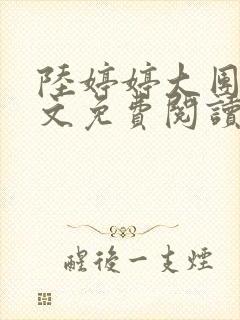 陸婷婷大團
文免費閱讀
醒後一支煙